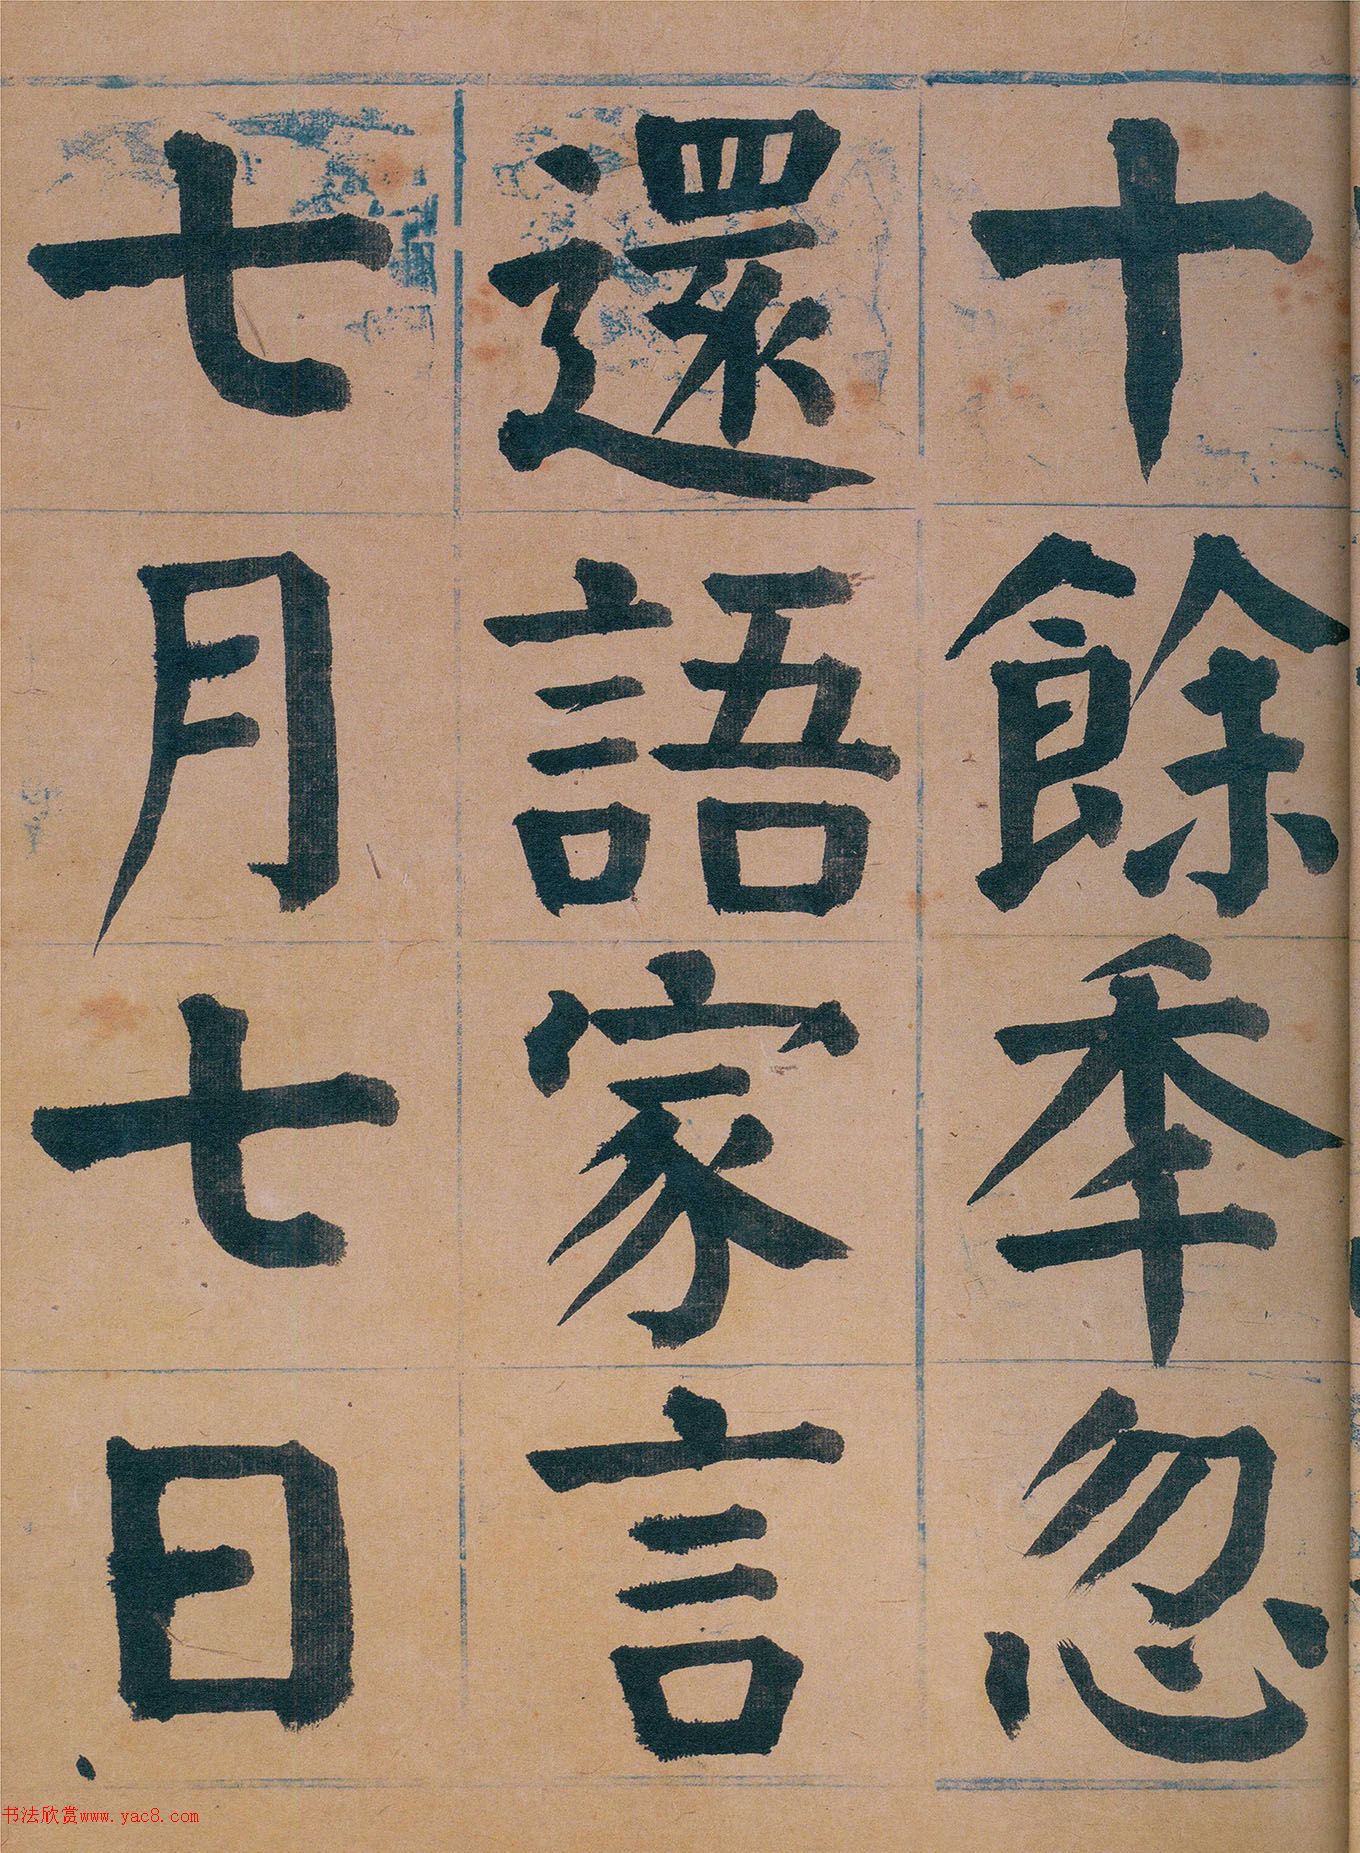 十餘年忽
還語家言
七月七日
书法欣赏www.yac8.com